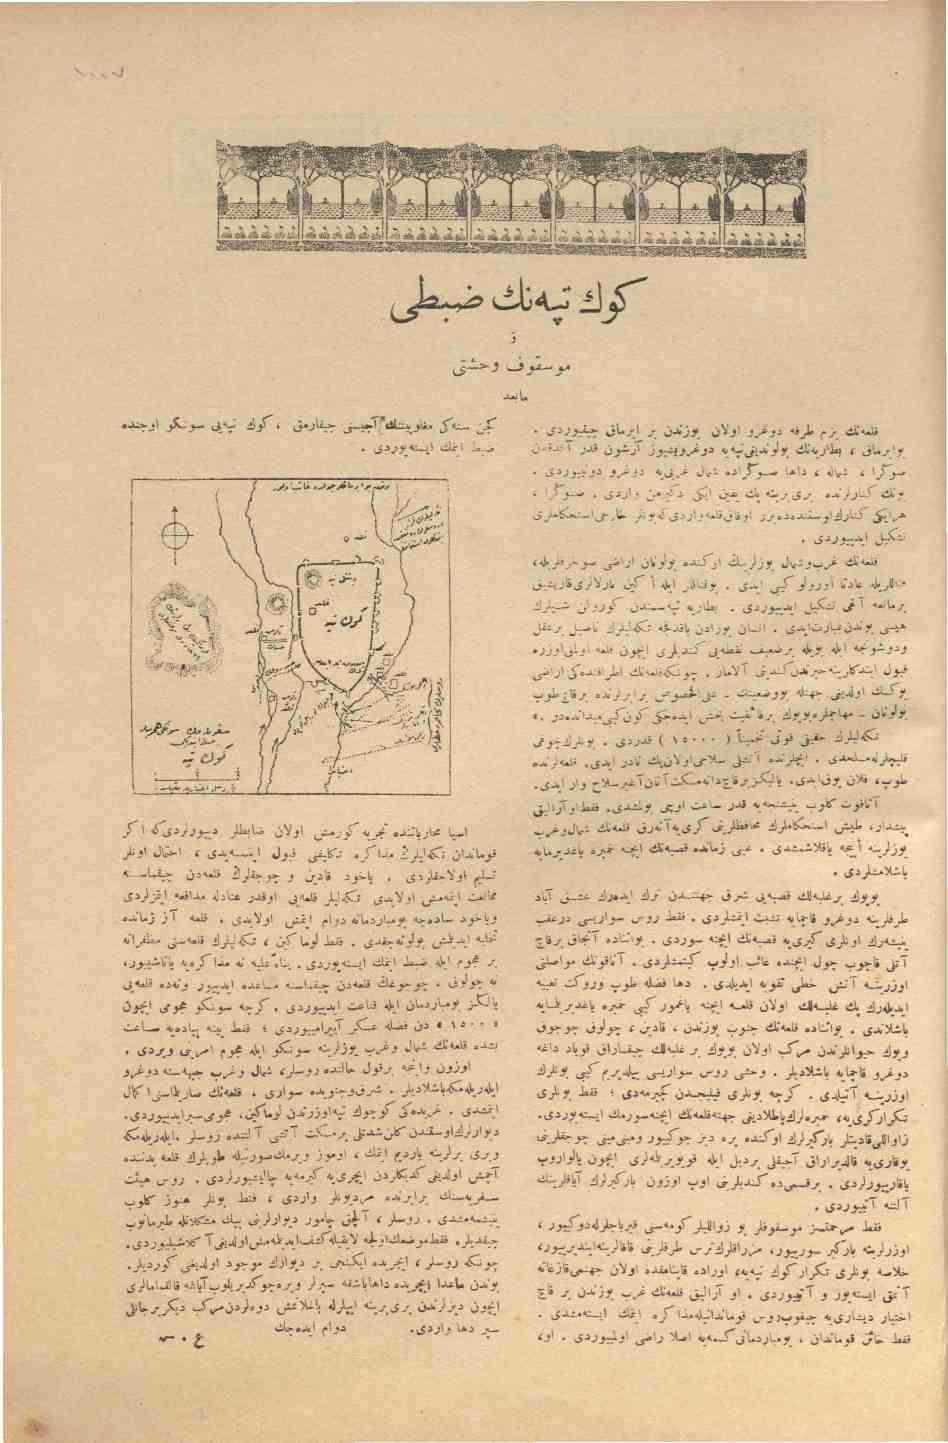 ١٠٠٧
كوك تپه‌نك ضبطی
و
موسقوف وحشتی
مابعد
قلعه‌نك برم طرفه دوغرو اولان یوزندن بر ایرماق چیقیوردی .
بوایرماق ، بطاریه‌نك بولوندیغی تپه‌یه دوغرو یتمیوز آرشون قدر آتدقدن
صوكرا ، شماله ، داها صوكراده شمال غربی‌یه دوغرو دونیوردی .
بونك كنارلرنده بری برینه پك یقین ایكی دكیرمن واردی . صوكرا ،
هرایكی كنارك اوستنده‌ده برر اوفاق قلعه واردی كه بونلر خارجی استحكاملری
تشكیل ایدییوردی .
قلعه‌نك غرب وشمال یوزلرینك اوكنده بولونان اراضی سوخرقلریله،
خندقلریله عادتا اورولو كبی ایدی . بوقناللر ایله أكین تارلالری قاریشیق
برمانعه آغی تشكیل ایدییوردی . بطاریه تپه‌سندن كورولن شیلرك
هپسی بوندن عبارت ایدی . انسان بورادن باقدقجه تكه‌لیلرك ناصیل بر عقل
ودوشونجه ایله بویله برضعیف نقطه‌یی كندیلری ایچون قلعه اولمق اوزره
قبول ایتدكارینه حیرتدن كندینی آلاماز . چونكه قلعه‌نك اطرافنده‌كی اراضی
یوكسك اولدیغی جهتله بووضعیتك ـ علی الخصوص برابرلرنده برقاچ طوپ
بولونان ـ مهاجملره بویوك برفائقیت بخش ایده‌جكی كون كبی میدانده‌در .»
تكه‌لیلرك حقیقی قوتی تخمیناً ( ١٥٠٠٠ ) قدردی . بونلرك چوغی
قلیچلرله مسلحدی . ایچلرنده آتشلی سلاحی اولان پك نادر ایدی. قلعه‌لرنده
طوپ، فلان یوق ایدی. یالیكز برقاچ دانه مسكت آتان آغیر سلاح وار ایدی.
آتاقوت كلوب یتیشنجه‌یه قدر ساعت اوچی بولمشدی. فقط او آرالیق
پیشدار، طیش استحكاملرك محافظلرینی كری‌یه آته‌رق قلعه‌نك شمال وغرب
یوزلرینه أییجه یاقلاشمشدی . عینی زمانده قصبه‌نك ایچنه خمبره یاغدیرمایه
باشلامشلردی .
بویوك برغلبه‌لك قصبه‌یی شرق جهتندن ترك ایده‌رك عشق آباد
طرفلرینه دوغرو قاچمایه تشبث ایتمشلردی . فقط روس سواریسی درعقب
یتیشه‌رك اونلری كیری‌یه قصبه‌نك ایچنه سوردی . بواثناده آنجاق برقاچ
آتلی قاچوب چول ایچنده غائب اولوب كیتمشلردی . آتاقوتك مواصلتی
اوزرینه آتش خطی تقویه ایدیلدی . دها فضله طوپ وروكت تعبیه
ایدیله‌رك پك غلبه‌لك اولان قلعه ایچنه یاغمور كبی خمبره یاغدیریلمایه
باشلاندی . بواثناده قلعه‌نك جنوب یوزندن ، قادین ، چولوق چوجوق
ویوك حیوانلرندن مركب اولان بویوك بر غلبه‌لك چیقه‌رق قوپاد داغه
دوغرو قاچمایه باشلادیلر . وحشی روس سواریسی ییلدیریم كبی بونلرك
اوزرینه آتیلدی . كرچه بونلری قیلیجدن كچیرمه‌دی ؛ فقط بونلری
تكرار كری‌یه، خمبره‌لرك پاطلادیغی جهنم قلعه‌نك ایچنه سورمك ایسته‌یوردی.
زاواللی قادینلر باركیرلرك اوكنده یره دیز چوكیور ومینی مینی چوجقلرینی
یوقاری‌یه قالدیراراق آجیقلی بردیل ایله قویویریله‌لری ایچون یالواروب
یاقاریورلردی . برقسمی‌ده كندیلرینی اوپ اوزون باركیرلرك آیاقلرینك
آلتنه آتییوردی .
فقط مرحمتسز موسقوفلر بو زواللیلر كومه‌سنی قیرباجلرله دوكییور ،
اوزرلرینه باركیر سورییور، مزراقلرك ترس طرفلرینی قافالرینه ایندیرییور،
خلاصه بونلری تكرار كوك تپه‌یه، اوراده قاینامقده اولان جهنمی قازغانه
آتمق ایسته‌یور و آتییوردی . او آرالیق قلعه‌نك غرب یوزندن بر قاچ
اختیار دیشاری‌یه چیقوب روس قوماندانیله مذاكره ایتمك ایسته‌مشدی .
فقط خائن قوماندان ، بومباردمانی كسمه‌یه اصلا راضی اولمییوردی . او،
كچن سنه‌كی مغلوبیتنك آجیسنی چیقارمق ، كوك تپه‌یی سونگو اوجنده
ضبط ایتمك ایسته‌یوردی .
ینغی تپه
كوك تپه
قلعه
كوك تپه
اسیا محارباتنده تجربه كورمش اولان ضابطلر دیورلردی كه اكر
قوماندان تكه‌لیلرك مذاكره تكلیفنی قبول ایتسه‌یدی ، احتمال اونلر
تسلیم اولاجقلردی . یاخود قادین و چوجقلرك قلعه‌دن چیقماسنه
ممانعت ایتمه‌مش اولایدی تكه‌لیلر قلعه‌یی اوقدر عنادله مدافعه ایتمزلردی
ویاخود ساده‌جه بومباردمانه دوام ایتمش اولایدی ، قلعه آز زمانده
تخلیه ایدیلمش بولونه‌جقدی . فقط لوماكین ، تكه‌لیلرك قلعه‌سنی مظفرانه
بر هجوم ایله ضبط ایتمك ایسته‌یوردی. بناءً علیه نه مذاكره‌یه یاناشییور،
نه چولوق ، چوجوغك قلعه‌دن چیقماسنه مساعده ایدییور ونه‌ده قلعه‌یی
یالكیز بومباردمان ایله قناعت ایدییوردی . كرچه سونكو هجومی ایچون
« ١٥٠٠ » دن فضله عسكر آییرامییوردی ؛ فقط یینه پیاده‌یه ساعت
بشده قلعه‌نك شمال وغرب یوزلرینه سونكو ایله هجوم امرینی ویردی .
اوزون وایجه برقول حالنده روسلر، شمال وغرب جبهه‌سنه دوغرو
ایله‌ریله‌مكه باشلادیلر . شرق وجنوبده سواری ، قلعه‌نك صاریلماسنی اكمال
ایتمشدی . غربده‌كی كوچوك تپه اوزرندن لوماكین، هجومی سیر ایدییوردی.
دیوارلرك اوستندن كلن شدتلی برمسكت آتشی آلتنده روسلر ،ایله‌ریله‌مكه
وبری برلرینه یاردیم ایتمك ، اوموز ویرمك صورتیله طوپلرك قلعه بدننده
آچمش اولدیغی كدیكلردن ایچری‌یه كیرمه‌یه چالیشیورلردی . روس هیئت
سفریه‌سنك برابرنده مردیونلر واردی ، فقط بونلر هنوز كلوب
یتیشمه‌مشدی . روسلر ، آلچق چامور دیوارلرینی پیك مشكلاتله طیرمانوب
چیقدیلر. فقط موضعك اولجه لایقیله كشف ایدیلمه‌مش اولدیغی آكلاشیلیوردی.
چونكه روسلر ، ایچریده ایكنجی بر دیوارك موجود اولدیغنی كوردیلر.
بوندن ماعدا ایچریده داها باشقه سپرلر ویره چوكدیریلوب آیاقه قالقمامالری
ایچون دیزلرندن بری برینه ایپلرله باغلانمش دوه‌لردن مركب دیكر برجانلی
سپر دها واردی. دوام ایده‌جك
ع . س